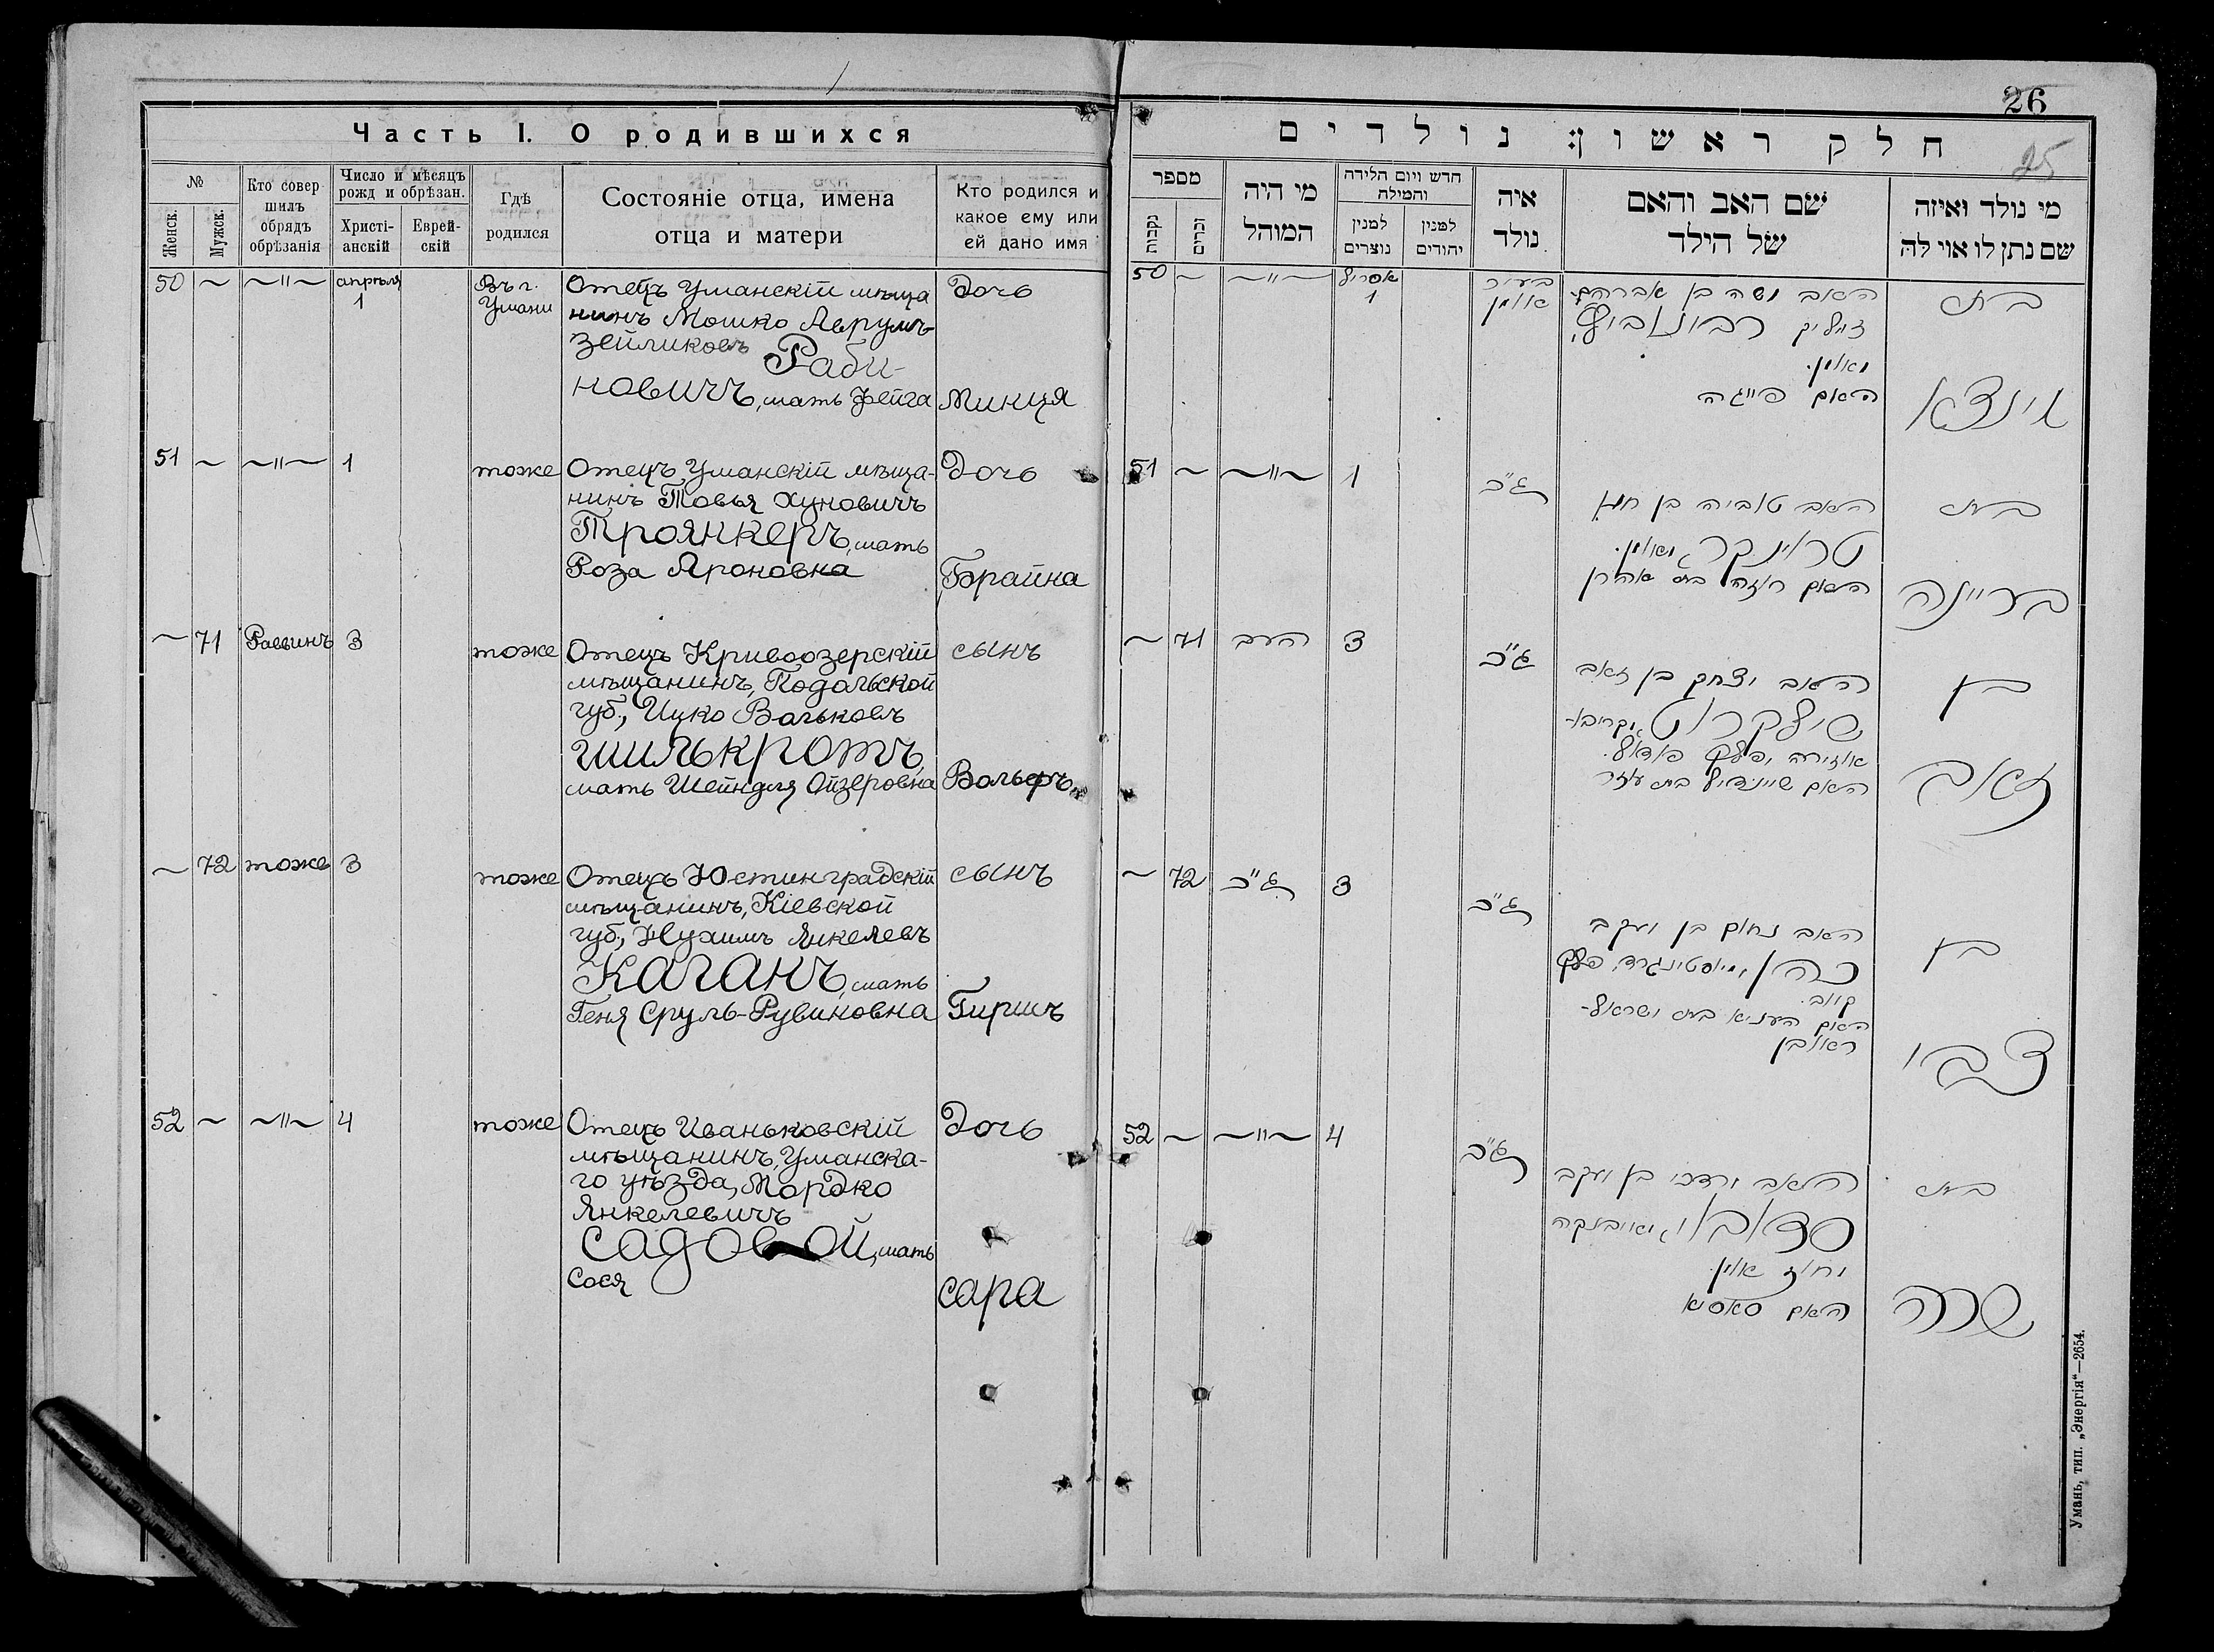 Часть I. О родившихся
№
Женск.
Мужск.
Кто совер
шилъ
обрядъ
обрѣзанія
Число и мѣсяцъ
рожд и обрѣзан.
Христі-
анскій
Еврей-
скій
Гдѣ
родился
Состояніе отца, имена
отца и матери
Кто родился и
какое ему или
ей дано имя
50 ~ ~"~ апрѣля
1
Въ г.
Умани
Отецъ Уманскій мѣща
нинъ Мошко Аврумъ-
Зейликовъ Раби-
новичъ, мать Фейга
Дочь
Минця
51 ~ ~"~ 1 тоже
Отецъ Уманскій мѣща-
нинъ Товья Хуновичъ
Троянкеръ, мать
Роза Ароновна
Дочь
Брайна
~ 71 Раввинъ 3 тоже
Отецъ Кривоозерскій
мѣщанинъ, Подольской
губ., Ицко Вольковъ
Шилькротъ,
мать Шейндля Ойзеровна
сынъ
Вольфъ
~ 72 тоже 3 тоже
Отецъ Юстинградскій
мѣщанинъ, Кіевской
губ., Нухимъ Янкелевъ
Каганъ, мать
Геня Сруль-Рувиновна
сынъ
Гиршъ
52 ~ ~"~ 4 тоже
Отецъ Иваньковскій
мѣщанинъ, Уманска-
го уѣзда, Мордко
Янкелевичъ
Садовой, мать
Сося
Дочь
Сара
26
25
חלק ראשון: נולדים
מספר
נקבות
זכרים
מי היה
המוהל
חדש ויום הלידה
והמילה
למנין
נוצרים
למנין
יהודים
איה
נולד
שם האב והאם
של הילד
מי נולד ואיזה
שם נתן לו אוי לה
50 ~ ~"~ אפריל
1
בעיר
אומן
האב משה בן אברהם
זייליק רבינוביץ,
מאומן.
האם פייגה
בת
מינצא
51 ~ ~"~ 1 ג"כ
האב טוביה בן חונא
טראינקר, מאומן.
האם רוזה בת אהרן
בת
בריינה
~ 71 הרב 3 ג"כ
האב יצחק בן זאב
שילקרוט, מקריבא-
אוזירה, פלך פאדאל.
האם שיינדיל בת עוזר
בן
זאב
~ 72 ג"כ 3 ג"כ
האב נחום בן יעקב
כהן, מיוסטינגרד, פלך
קיוב.
האם העניא בת ישראל-
ראובן
בן
צבי
52 ~ ~"~ 4 ג"כ
האב מרדכי בן יעקב
סדובוי, מאיבנקה
מחוז אומן.
האם סאסיא
בת
שרה
Умань, тип. „Энергія“—2654.